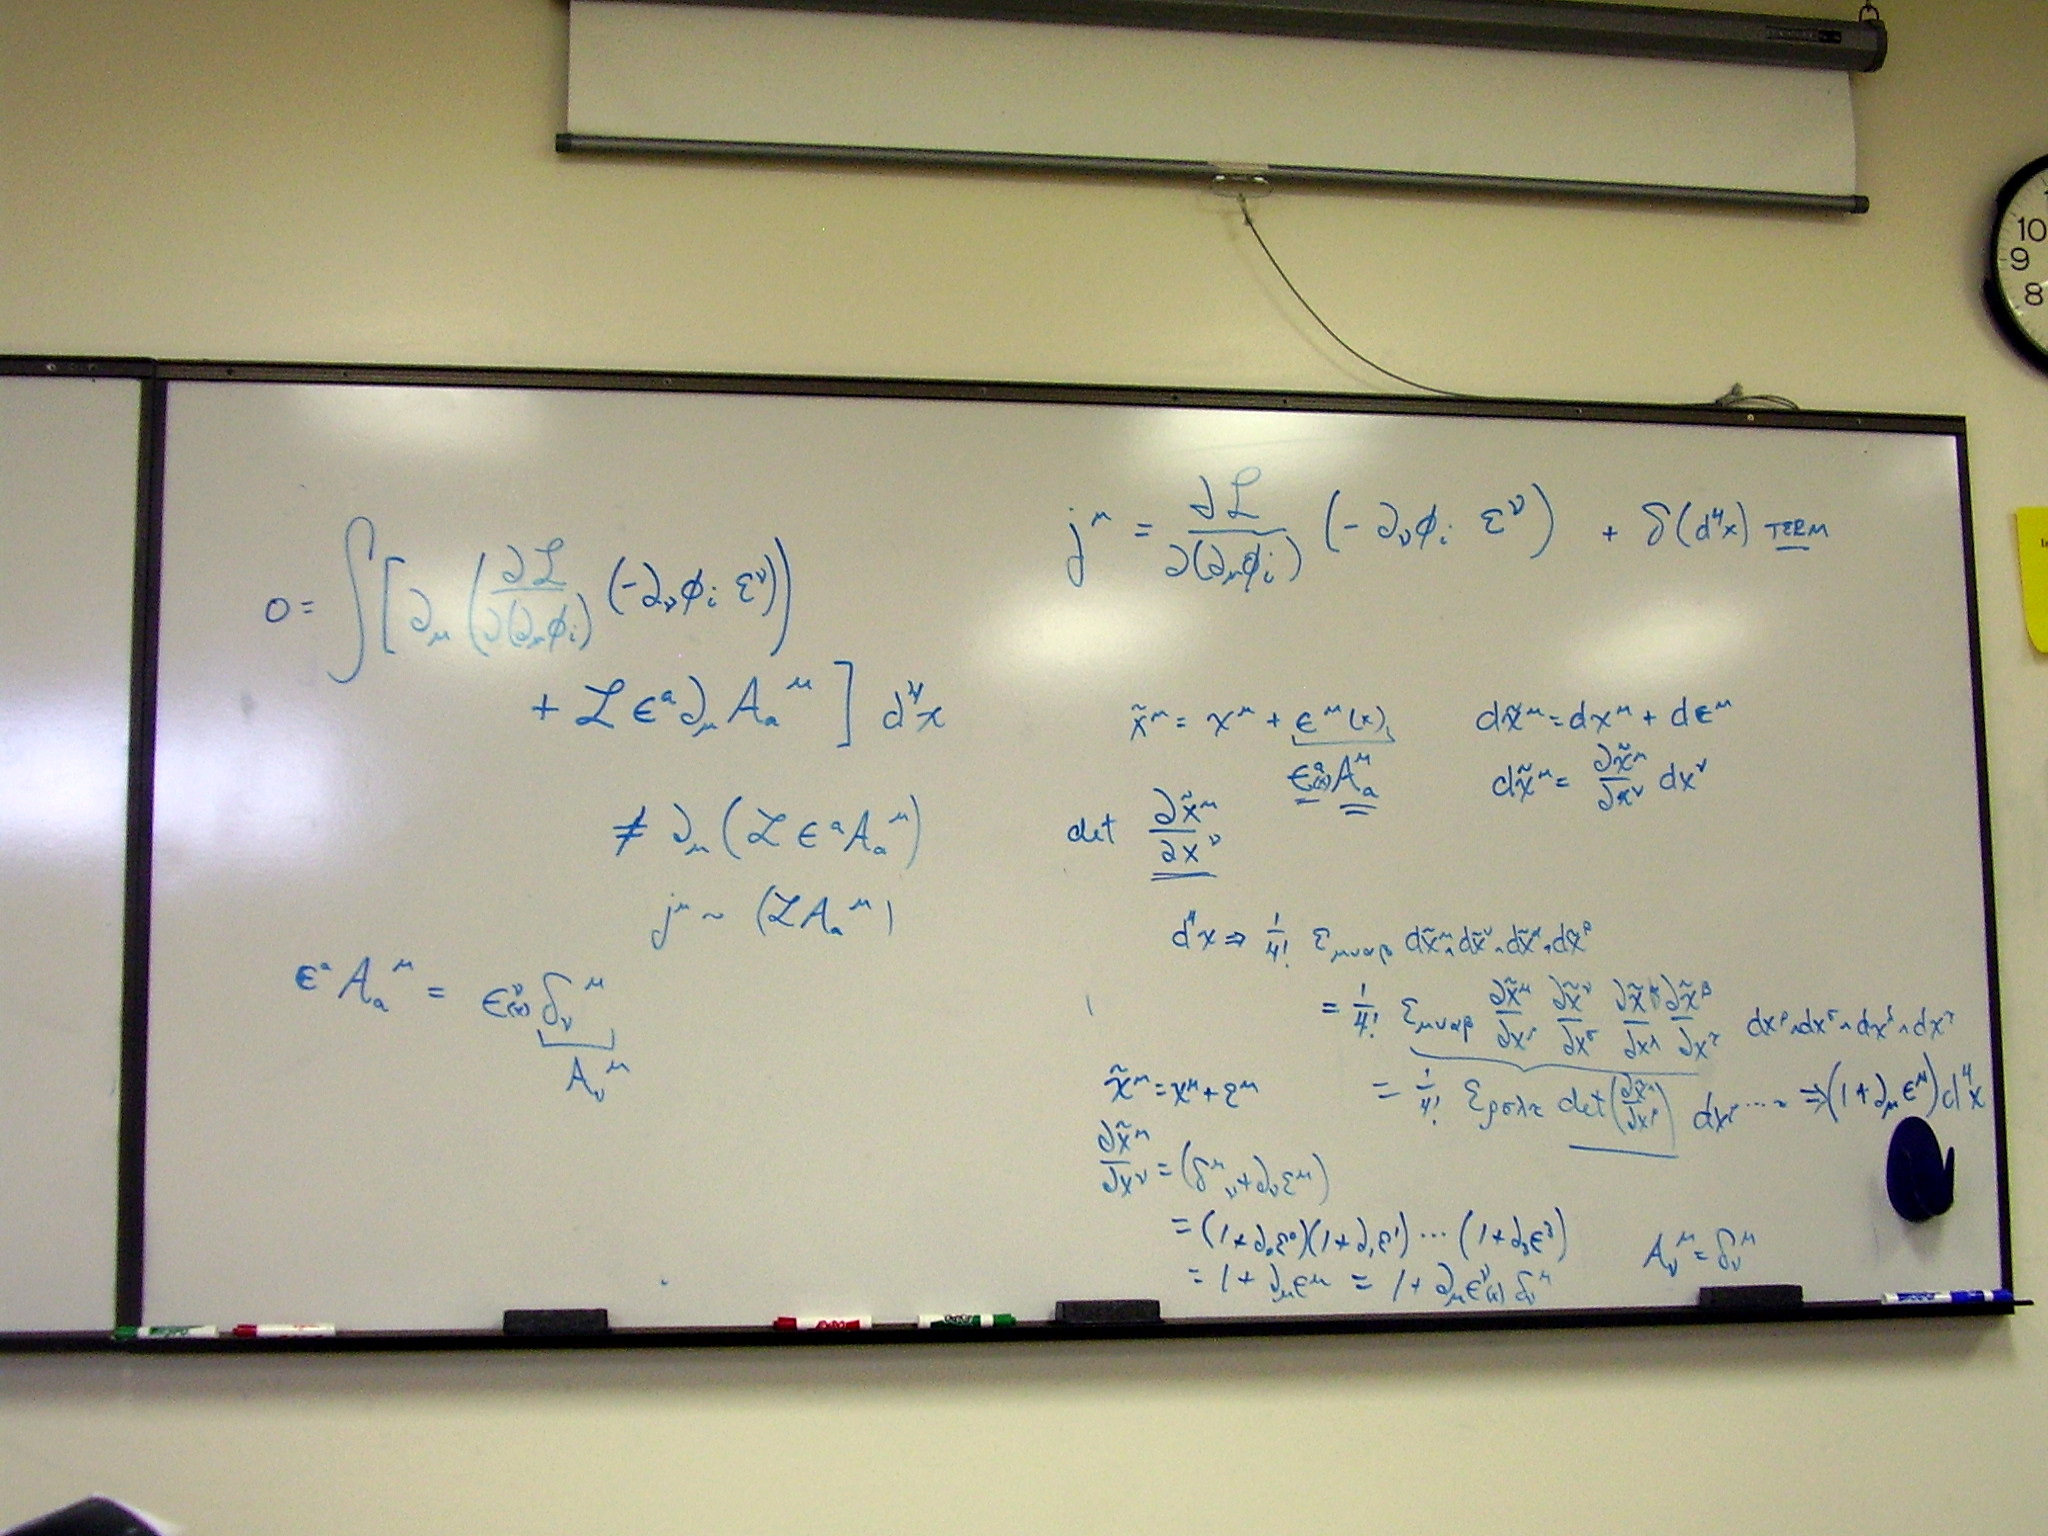 0 = ∫ [ ∂_μ ( ∂ℒ/∂(∂_μ φ_i) (-∂_ν φ_i ε^ν) )
+ ℒ ε^a ∂_μ A_a^μ ] d^4x
≠ ∂_μ (ℒ ε^a A_a^μ)
j^μ ~ (ℒ A_a^μ)
ε^a A_a^μ = ε^ν(x) δ_ν^μ
A_ν^μ
j^μ = ∂ℒ/∂(∂_μ φ_i) (-∂_ν φ_i ε^ν) + δ(d^4x) TERM
x̃^μ = x^μ + ε^μ(x) dx̃^μ = dx^μ + dε^μ
ε^a(x) A_a^μ dx̃^μ = ∂x̃^μ/∂x^ν dx^ν
det ∂x̃^μ/∂x^ν
d^4x ⇒ 1/4! ε_μναβ dx̃^μ ∧ dx̃^ν ∧ dx̃^α ∧ dx̃^β
= 1/4! ε_μναβ ∂x̃^μ/∂x^ρ ∂x̃^ν/∂x^σ ∂x̃^α/∂x^λ ∂x̃^β/∂x^τ dx^ρ ∧ dx^σ ∧ dx^λ ∧ dx^τ
= 1/4! ε_ρσλτ det(∂x̃^μ/∂x^ρ) dx^ρ ... ⇒ (1 + ∂_μ ε^μ) d^4x
x̃^μ = x^μ + ε^μ
∂x̃^μ/∂x^ν = (δ^μ_ν + ∂_ν ε^μ)
= (1 + ∂_0 ε^0)(1 + ∂_1 ε^1) ... (1 + ∂_3 ε^3)
= 1 + ∂_μ ε^μ = 1 + ∂_μ ε^ν(x) δ_ν^μ
A_ν^μ = δ_ν^μ
10
9
8
EXPO